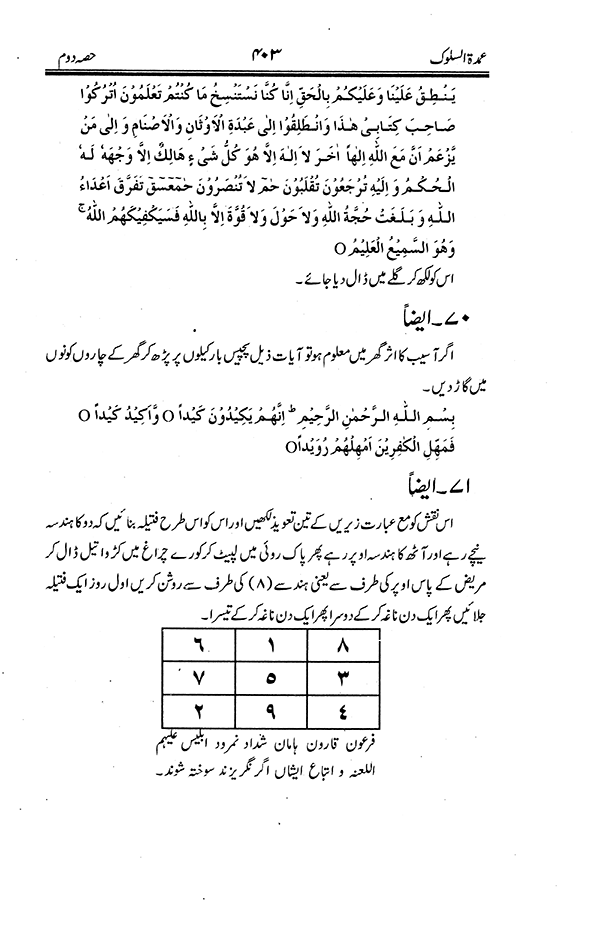 عمدۃ السلوک ۴۰۳ حصہ دوم
يَنْطِقُ عَلَيْنَا وَعَلَيْكُمْ بِالْحَقِّ اِنَّا كُنَّا نَسْتَنْسِخُ مَا كُنْتُمْ تَعْلَمُوْنَ اُتْرُكُوْا
صَاحِبَ كِتَابِىْ هٰذَا وَانْطَلِقُوْا اِلٰى عَبْدَةِ الْاَوْثَانِ وَالْاَصْنَامِ وَ اِلٰى مَنْ
يَّزْعَمُ اَنَّ مَعَ اللّٰهِ اِلٰهاً اٰخَرَ لَا اِلٰهَ اِلَّا هُوَ كُلُّ شَىْءٍ هَالِكٌ اِلَّا وَجْهَهٗ لَهُ
الْحُكْمُ وَ اِلَيْهِ تُرْجَعُوْنَ تُقْلَبُوْنَ حٰمٓ لَا تُنْصَرُوْنَ حٰمٓعٓسٓقٓ تَفَرَّقَ اَعْدَاءُ
اللّٰهِ وَ بَلَغَتْ حُجَّةُ اللّٰهِ وَلَا حَوْلَ وَلَا قُوَّةَ اِلَّا بِاللّٰهِ فَسَيَكْفِيْكَهُمُ اللّٰهُ ۚ
وَهُوَ السَّمِيْعُ الْعَلِيْمُ O
اس کو لکھ کر گلے میں ڈال دیا جائے۔
۷۰۔ ایضاً
اگر آسیب کا اثر گھر میں معلوم ہو تو آیات ذیل پچیس بار کیلوں پر پڑھ کر گھر کے چاروں کونوں
میں گاڑ دیں۔
بِسْمِ اللّٰهِ الرَّحْمٰنِ الرَّحِيْمِ ؕ اِنَّهُمْ يَكِيْدُوْنَ كَيْداً O وَّاَكِيْدُ كَيْداً O
فَمَهِّلِ الْكٰفِرِيْنَ اَمْهِلْهُمْ رُوَيْداً O
۷۱۔ ایضاً
اس نقش کو مع عبارت زیریں کے تین تعویذ لکھیں اور اس کو اس طرح فتیلہ بنائیں کہ دو کا ہندسہ
نیچے رہے اور آٹھ کا ہندسہ اوپر رہے پھر پاک روئی میں لپیٹ کر کورے چراغ میں کڑوا تیل ڈال کر
مریض کے پاس اوپر کی طرف سے یعنی ہندسے (۸) کی طرف سے روشن کریں اول روز ایک فتیلہ
جلائیں پھر ایک دن ناغہ کر کے دوسرا پھر ایک دن ناغہ کر کے تیسرا۔
۸ ۱ ۶
۳ ۵ ۷
۴ ۹ ۲
فرعون قارون ہامان شداد نمرود ابلیس علیہم
اللعنہ و اتباع ایشاں اگر نگریزند سوختہ شوند۔